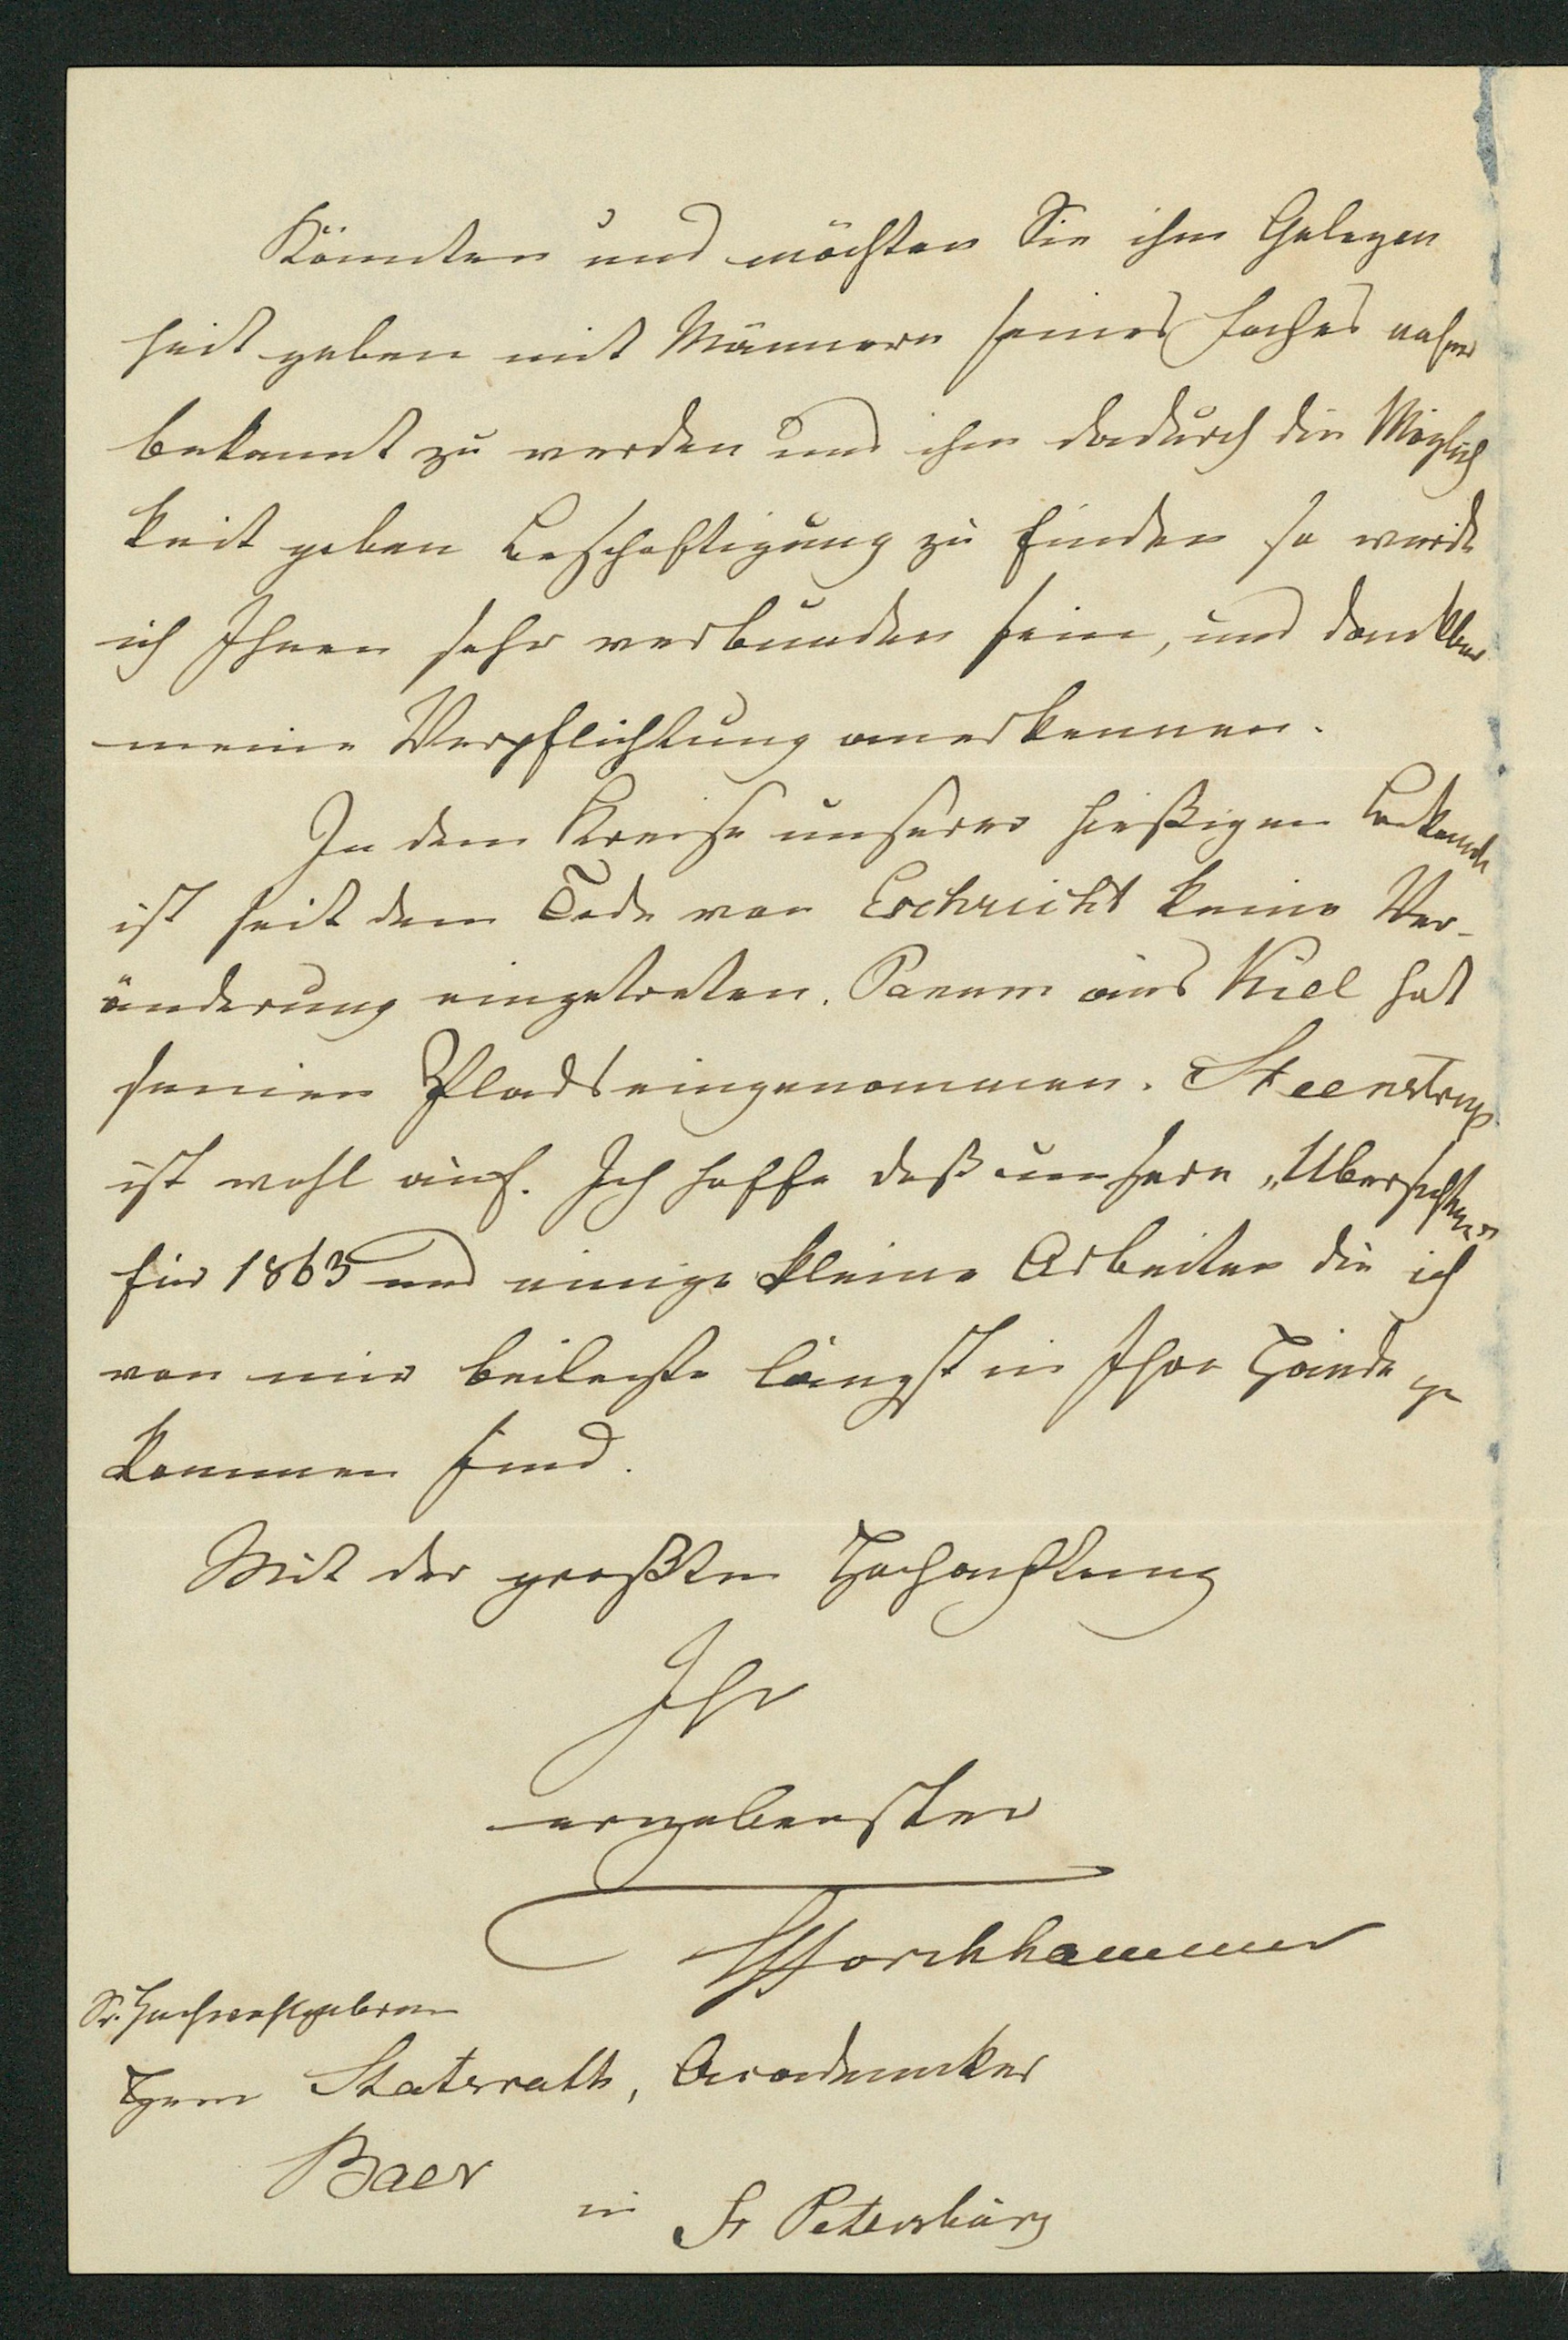 Könnten und möchten Sie ihm Gelegen
heit geben mit Männern seines Faches naher
bekannt zu werden und ihm dadurch die Möglich
keit geben Beschaftigung zu finden so wurde
ich Ihnen sehr verbunden sein, und dankbar
meine Verpflichtung anerkennen.
In dem Kreise unserer hießigen Bekannte
ist seit dem Tode von Eschricht keine Ver-
änderung eingetreten. Panum aus Kiel hat
seinen Plads eingenommen. Steenstrup
ist wohl auf. Ich hoffe daß unsere „Ubersichten"
für 1863 und einige kleine Arbeiten die ich
von mir beilegte längst in Ihre Hände ge
kommen sind.
Mit der großten Hochachtung
Ihr
ergebenster
GForchhammer
Sr. Hochwohlgeboren
Herrn Statsrath, Academiker
Baer
in St Petersburg